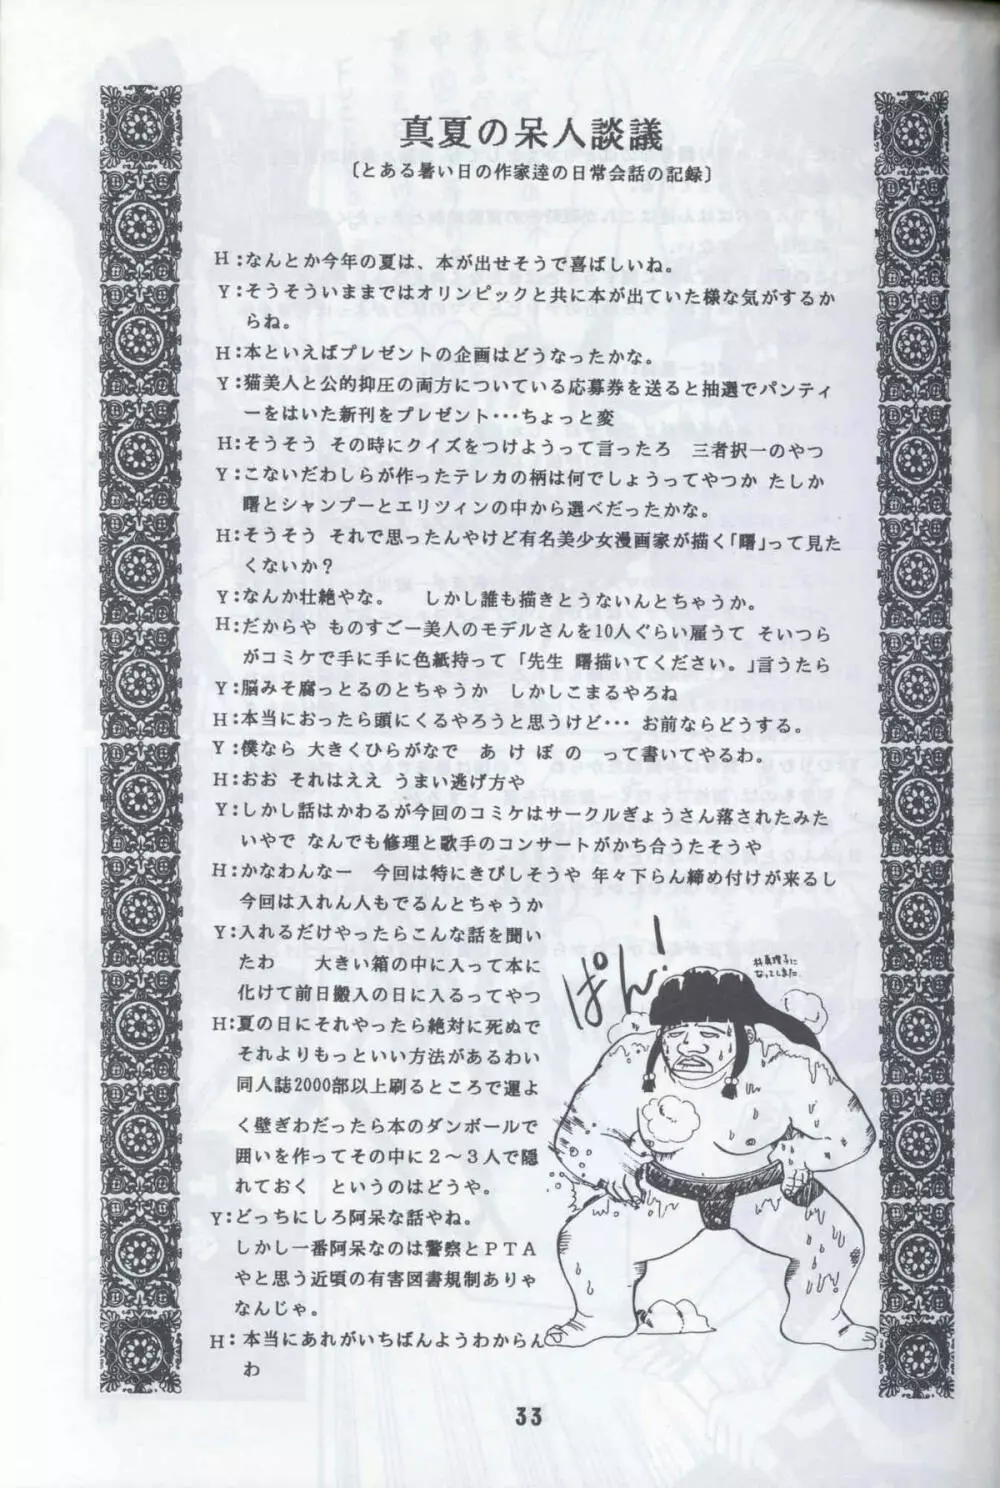 真夏の呆人談議
〔とある暑い日の作家達の日常会話の記録〕
H:なんとか今年の夏は、本が出せそうで喜ばしいね。
Y:そうそういままではオリンピックと共に本が出ていた様な気がするか
らね。
H:本といえばプレゼントの企画はどうなったかな。
Y:猫美人と公的抑圧の両方についている応募券を送ると抽選でパンティ
ーをはいた新刊をプレゼント・・・ちょっと変
H:そうそう その時にクイズをつけようって言ったろ 三者択一のやつ
Y:こないだわしらが作ったテレカの柄は何でしょうってやつか たしか
曙とシャンプーとエリツィンの中から選べだったかな。
H:そうそう それで思ったんやけど有名美少女漫画家が描く「曙」って見た
くないか？
Y:なんか壮絶やな。 しかし誰も描きとうないんとちゃうか。
H:だからや ものすごー美人のモデルさんを10人ぐらい雇うて そいつら
がコミケで手に手に色紙持って「先生 曙描いてください。」言うたら
Y:脳みそ腐っとるのとちゃうか しかしこまるやろね
H:本当におったら頭にくるやろうと思うけど・・・ お前ならどうする。
Y:僕なら 大きくひらがなで あ け ぼ の って書いてやるわ。
H:おお それはええ うまい逃げ方や
Y:しかし話はかわるが今回のコミケはサークルぎょうさん落されたみた
いやで なんでも修理と歌手のコンサートがかち合うたそうや
H:かなわんなー 今回は特にきびしそうや 年々下らん締め付けが来るし
今回は入れん人もでるんとちゃうか
Y:入れるだけやったらこんな話を聞い
たわ 大きい箱の中に入って本に
化けて前日搬入の日に入るってやつ
H:夏の日にそれやったら絶対に死ぬで
それよりもっといい方法があるわい
同人誌2000部以上刷るところで運よ
く壁ぎわだったら本のダンボールで
囲いを作ってその中に２〜３人で隠
れておく というのはどうや。
Y:どっちにしろ阿呆な話やね。
しかし一番阿呆なのは警察とＰＴＡ
やと思う近頃の有害図書規制ありゃ
なんじゃ。
H:本当にあれがいちばんようわからん
わ
ぱん!
になってしまった
33